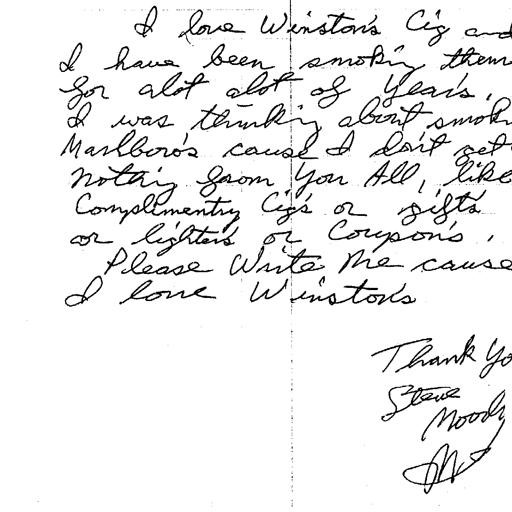 I love Winston's Cig and
I have been smoking them
for alot alot of years,
I was thinking about smok
Marlboro's cause I don't get
nothing from You All, like
Complimentry Cig's or gifts
or lighters or Coupon's.
Please Write Me cause
I love Winston's
Thank Yo
Steve
Moody